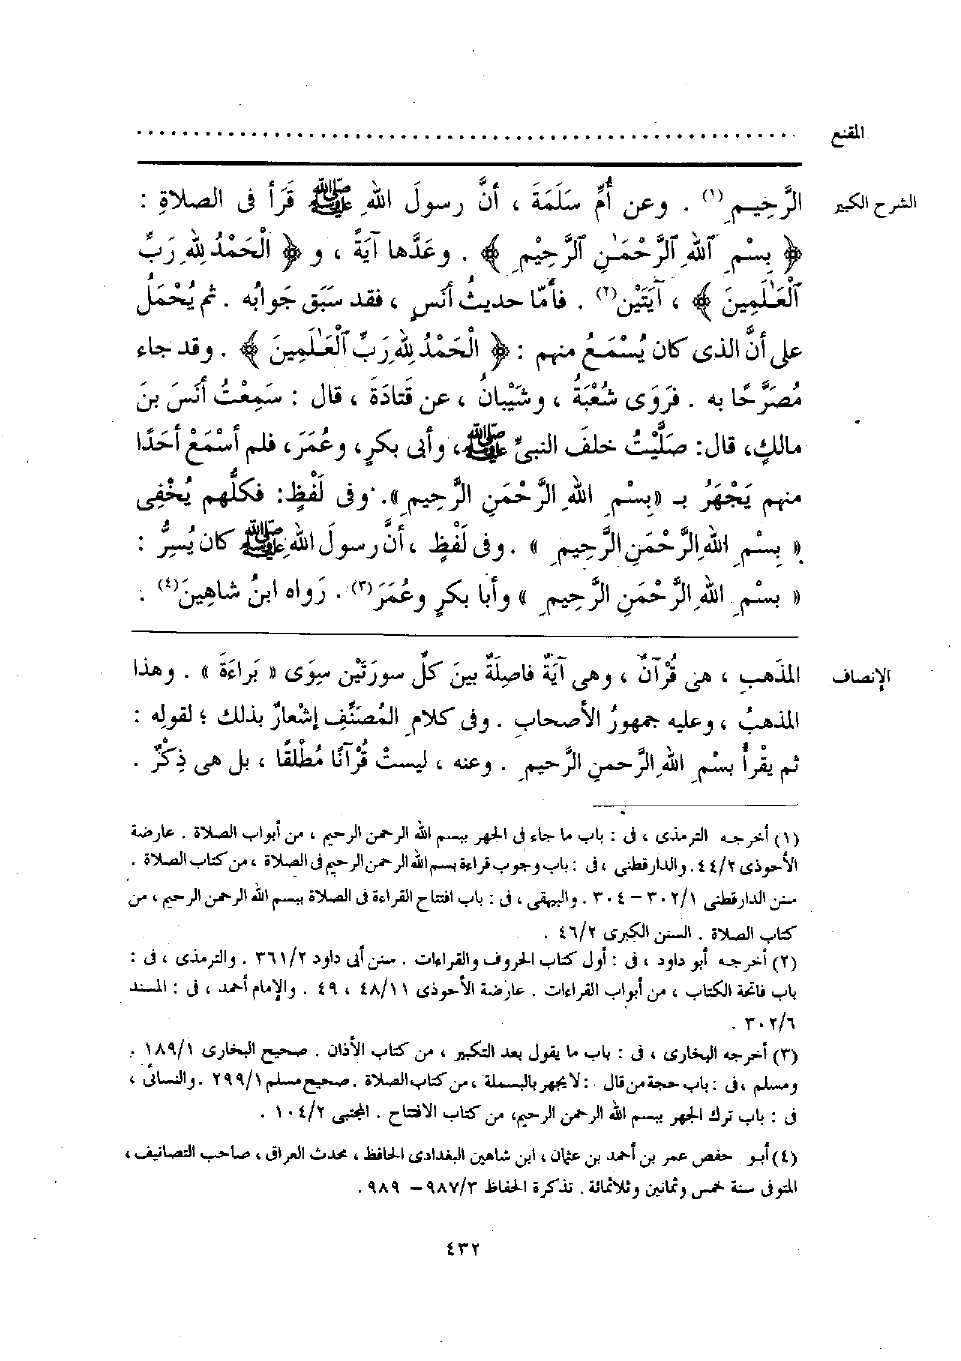 المقنع ............................................................
الشرح الكبير الرَّحِيمِ(١) . وعن أُمِّ سَلَمَةَ ، أنَّ رسولَ اللهِ ﷺ قَرَأ فى الصلاةِ :
﴿ بِسْمِ ٱللهِ ٱلرَّحْمَـٰنِ ٱلرَّحِيْمِ ﴾ . وعَدَّها آيَةً ، و ﴿ الْحَمْدُ لِلهِ رَبِّ
ٱلْعَـٰلَمِينَ ﴾ ، آيَتَيْن(٢) . فأمّا حديثُ أنَسٍ ، فقد سَبَق جَوابُه . ثم يُحْمَلُ
على أنَّ الذى كان يُسْمَعُ منهم : ﴿ الْحَمْدُ لِلهِ رَبِّ ٱلْعَـٰلَمِينَ ﴾ . وقد جاء
مُصَرَّحًا به . فرَوَى شُعْبَةُ ، وشَيْبانُ ، عن قَتادَةَ ، قال : سَمِعْتُ أنَسَ بنَ
مالكٍ، قال: صَلَّيْتُ خلفَ النبىِّ ﷺ، وأبى بكرٍ، وعُمَرَ، فلم أسْمَعْ أحَدًا
منهم يَجْهَرُ بـ «بِسْمِ اللهِ الرَّحْمَنِ الرَّحِيمِ». وفى لَفْظٍ: فكلُّهم يُخْفِى
« بِسْمِ اللهِ الرَّحْمَنِ الرَّحِيمِ » . وفى لَفْظٍ ، أنَّ رسولَ اللهِ ﷺ كان يُسِرُّ :
« بسْمِ اللهِ الرَّحْمَنِ الرَّحِيمِ » وأبا بكرٍ وعُمَرَ(٣) . رَواه ابنُ شاهِينَ(٤) .
الإنصاف المذَهبِ ، هى قُرْآنٌ ، وهى آيَةٌ فاصِلَةٌ بينَ كلِّ سورَتَيْن سِوَى « بَراءَةَ » . وهذا
المذهبُ ، وعليه جمهورُ الأصحابِ . وفى كلامِ المُصَنِّفِ إشْعارٌ بذلك ؛ لقولِه :
ثم يقْرأُ بسْمِ اللهِ الرَّحمنِ الرَّحيمِ . وعنه ، ليستْ قُرآنًا مُطْلقًا ، بل هى ذِكْرٌ .
(١) أخرجه الترمذى ، فى : باب ما جاء فى الجهر ببسم الله الرحمن الرحيم ، من أبواب الصلاة . عارضة
الأحوذى ٤٤/٢. والدارقطنى ، فى : باب وجوب قراءة بسم الله الرحمن الرحيم فى الصلاة ، من كتاب الصلاة .
سنن الدارقطنى ٣٠٢/١ – ٣٠٤ . والبيهقى ، فى : باب افتتاح القراءة فى الصلاة ببسم الله الرحمن الرحيم ، من
كتاب الصلاة . السنن الكبرى ٤٦/٢ .
(٢) أخرجه أبو داود ، فى : أول كتاب الحروف والقراءات . سنن أبى داود ٣٦١/٢ . والترمذى ، فى :
باب فاتحة الكتاب ، من أبواب القراءات . عارضة الأحوذى ٤٨/١١ ، ٤٩ . والإمام أحمد ، فى : المسند
٣٠٢/٦ .
(٣) أخرجه البخارى ، فى : باب ما يقول بعد التكبير ، من كتاب الأذان . صحيح البخارى ١٨٩/١ .
ومسلم ، فى : باب حجة من قال : لا يجهر بالبسملة ، من كتاب الصلاة . صحيح مسلم ٢٩٩/١ . والنسائى ،
فى : باب ترك الجهر ببسم الله الرحمن الرحيم، من كتاب الافتتاح . المجتبى ١٠٤/٢ .
(٤) أبو حفص عمر بن أحمد بن عثمان ، ابن شاهين البغدادى الحافظ ، محدث العراق ، صاحب التصانيف ،
المتوفى سنة خمس وثمانين وثلاثمائة . تذكرة الحفاظ ٩٨٧/٣ – ٩٨٩ .
٤٣٢